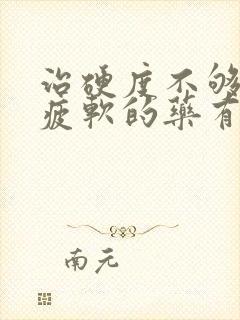 治硬度不够
疲軟的藥有
南元